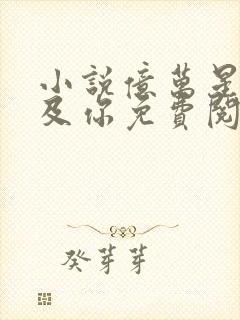 小說億萬星
及你免費閱
癸芽芽